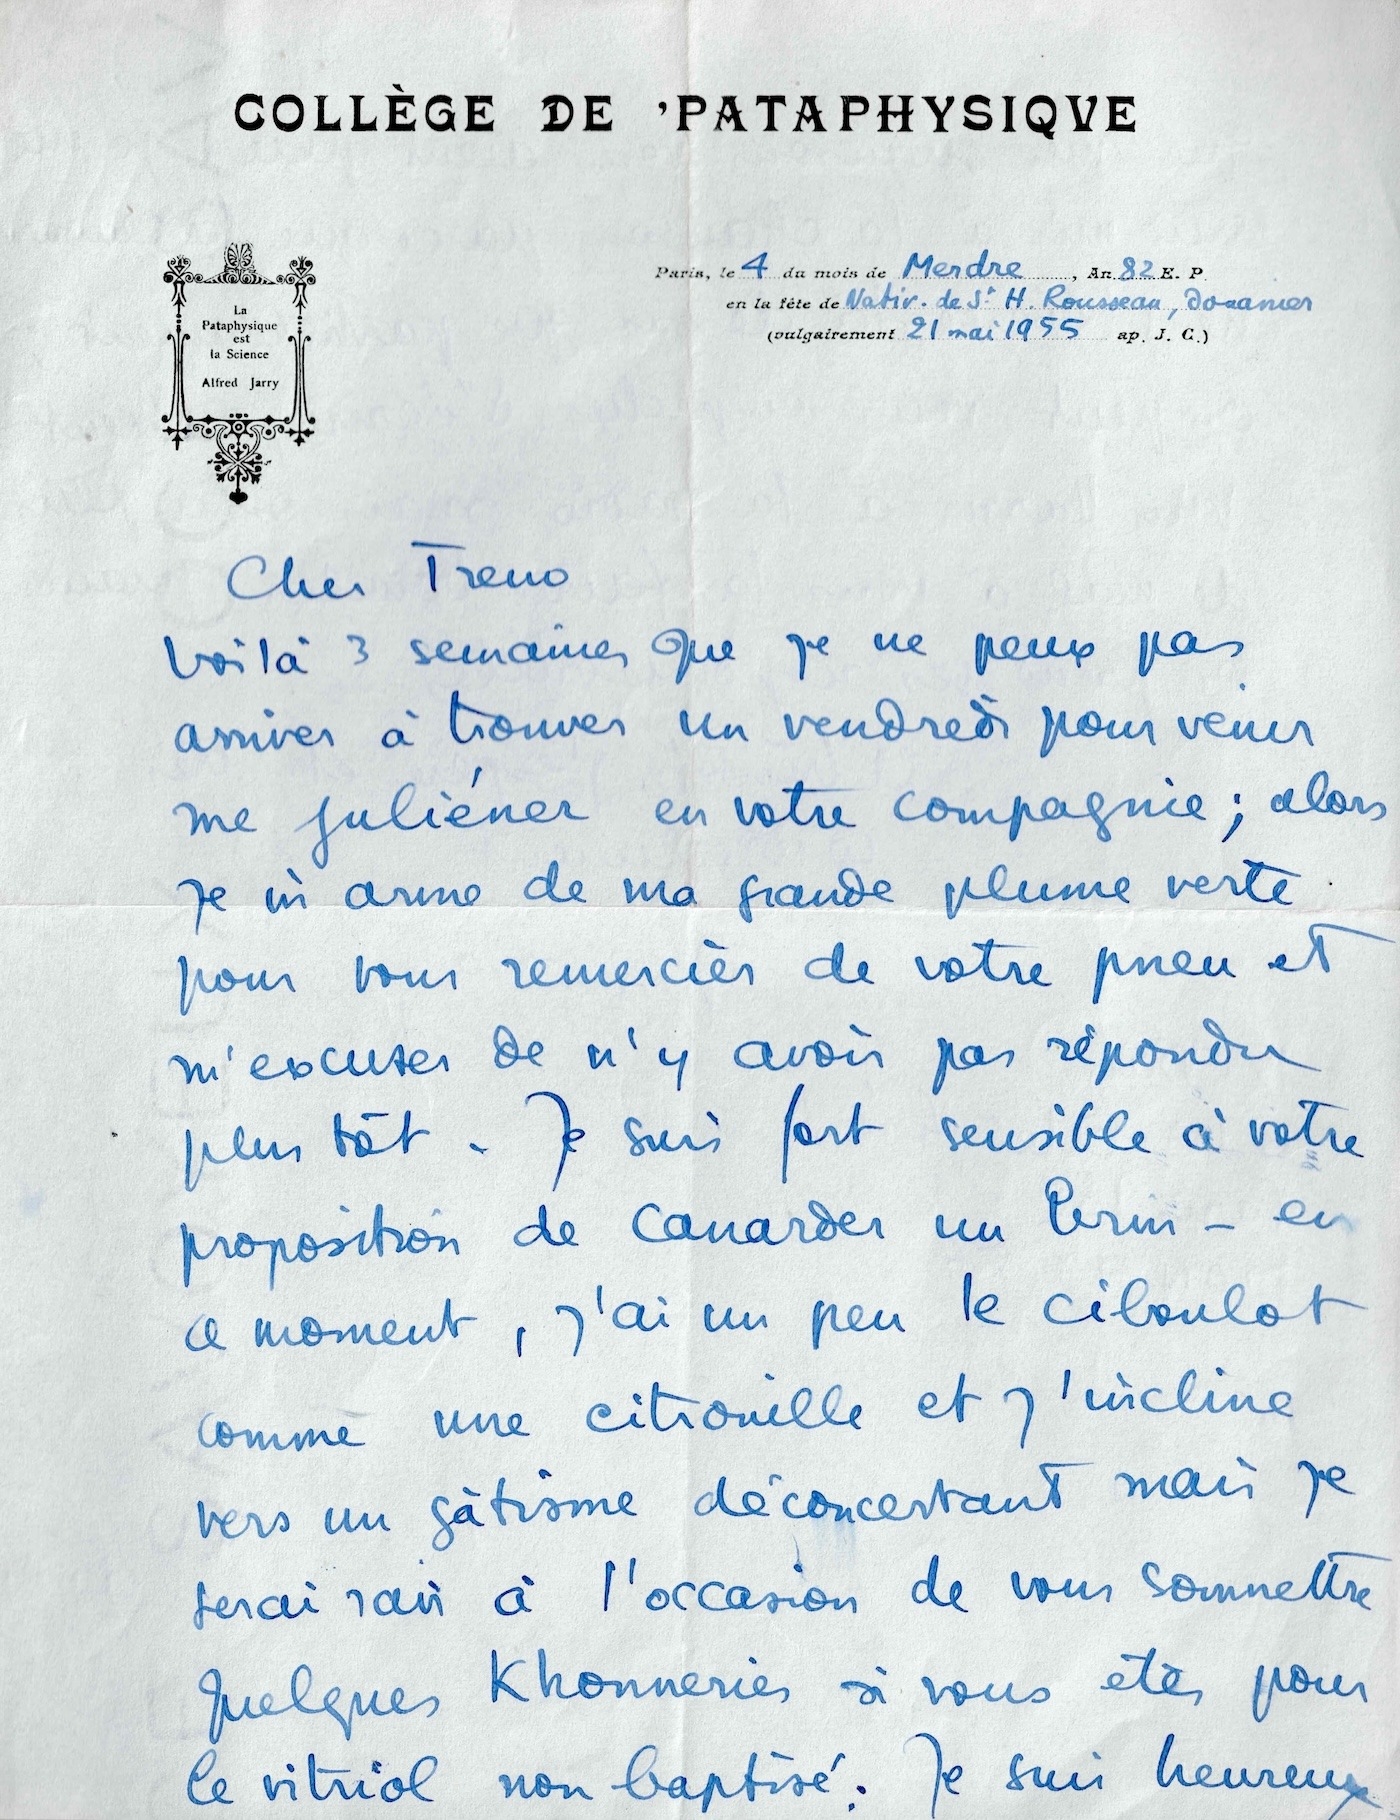 COLLÈGE DE 'PATAPHYSIQVE
La
Pataphysique
est
la Science
Alfred Jarry
Paris, le 4 du mois de Merdre, An 82 E. P
en la fête de Nativ. de St H. Rousseau, Douanier
(vulgairement 21 mai 1955 ap. J. C.)
Cher Treno
Voilà 3 semaines que je ne peux pas
arriver à trouver un vendredi pour venir
me juliéner en votre compagnie ; alors
je m'arme de ma grande plume verte
pour vous remercier de votre pneu et
m'excuser de n'y avoir pas répondu
plus tôt. Je suis fort sensible à votre
proposition de canarder un - en
ce moment, j'ai un peu le ciboulot
comme une citrouille et j'incline
vers un gâtisme déconcertant mais je
serai ravi à l'occasion de vous soumettre
quelques Khonneries si vous êtes pour
le vitriol non baptisé. Je suis heureux